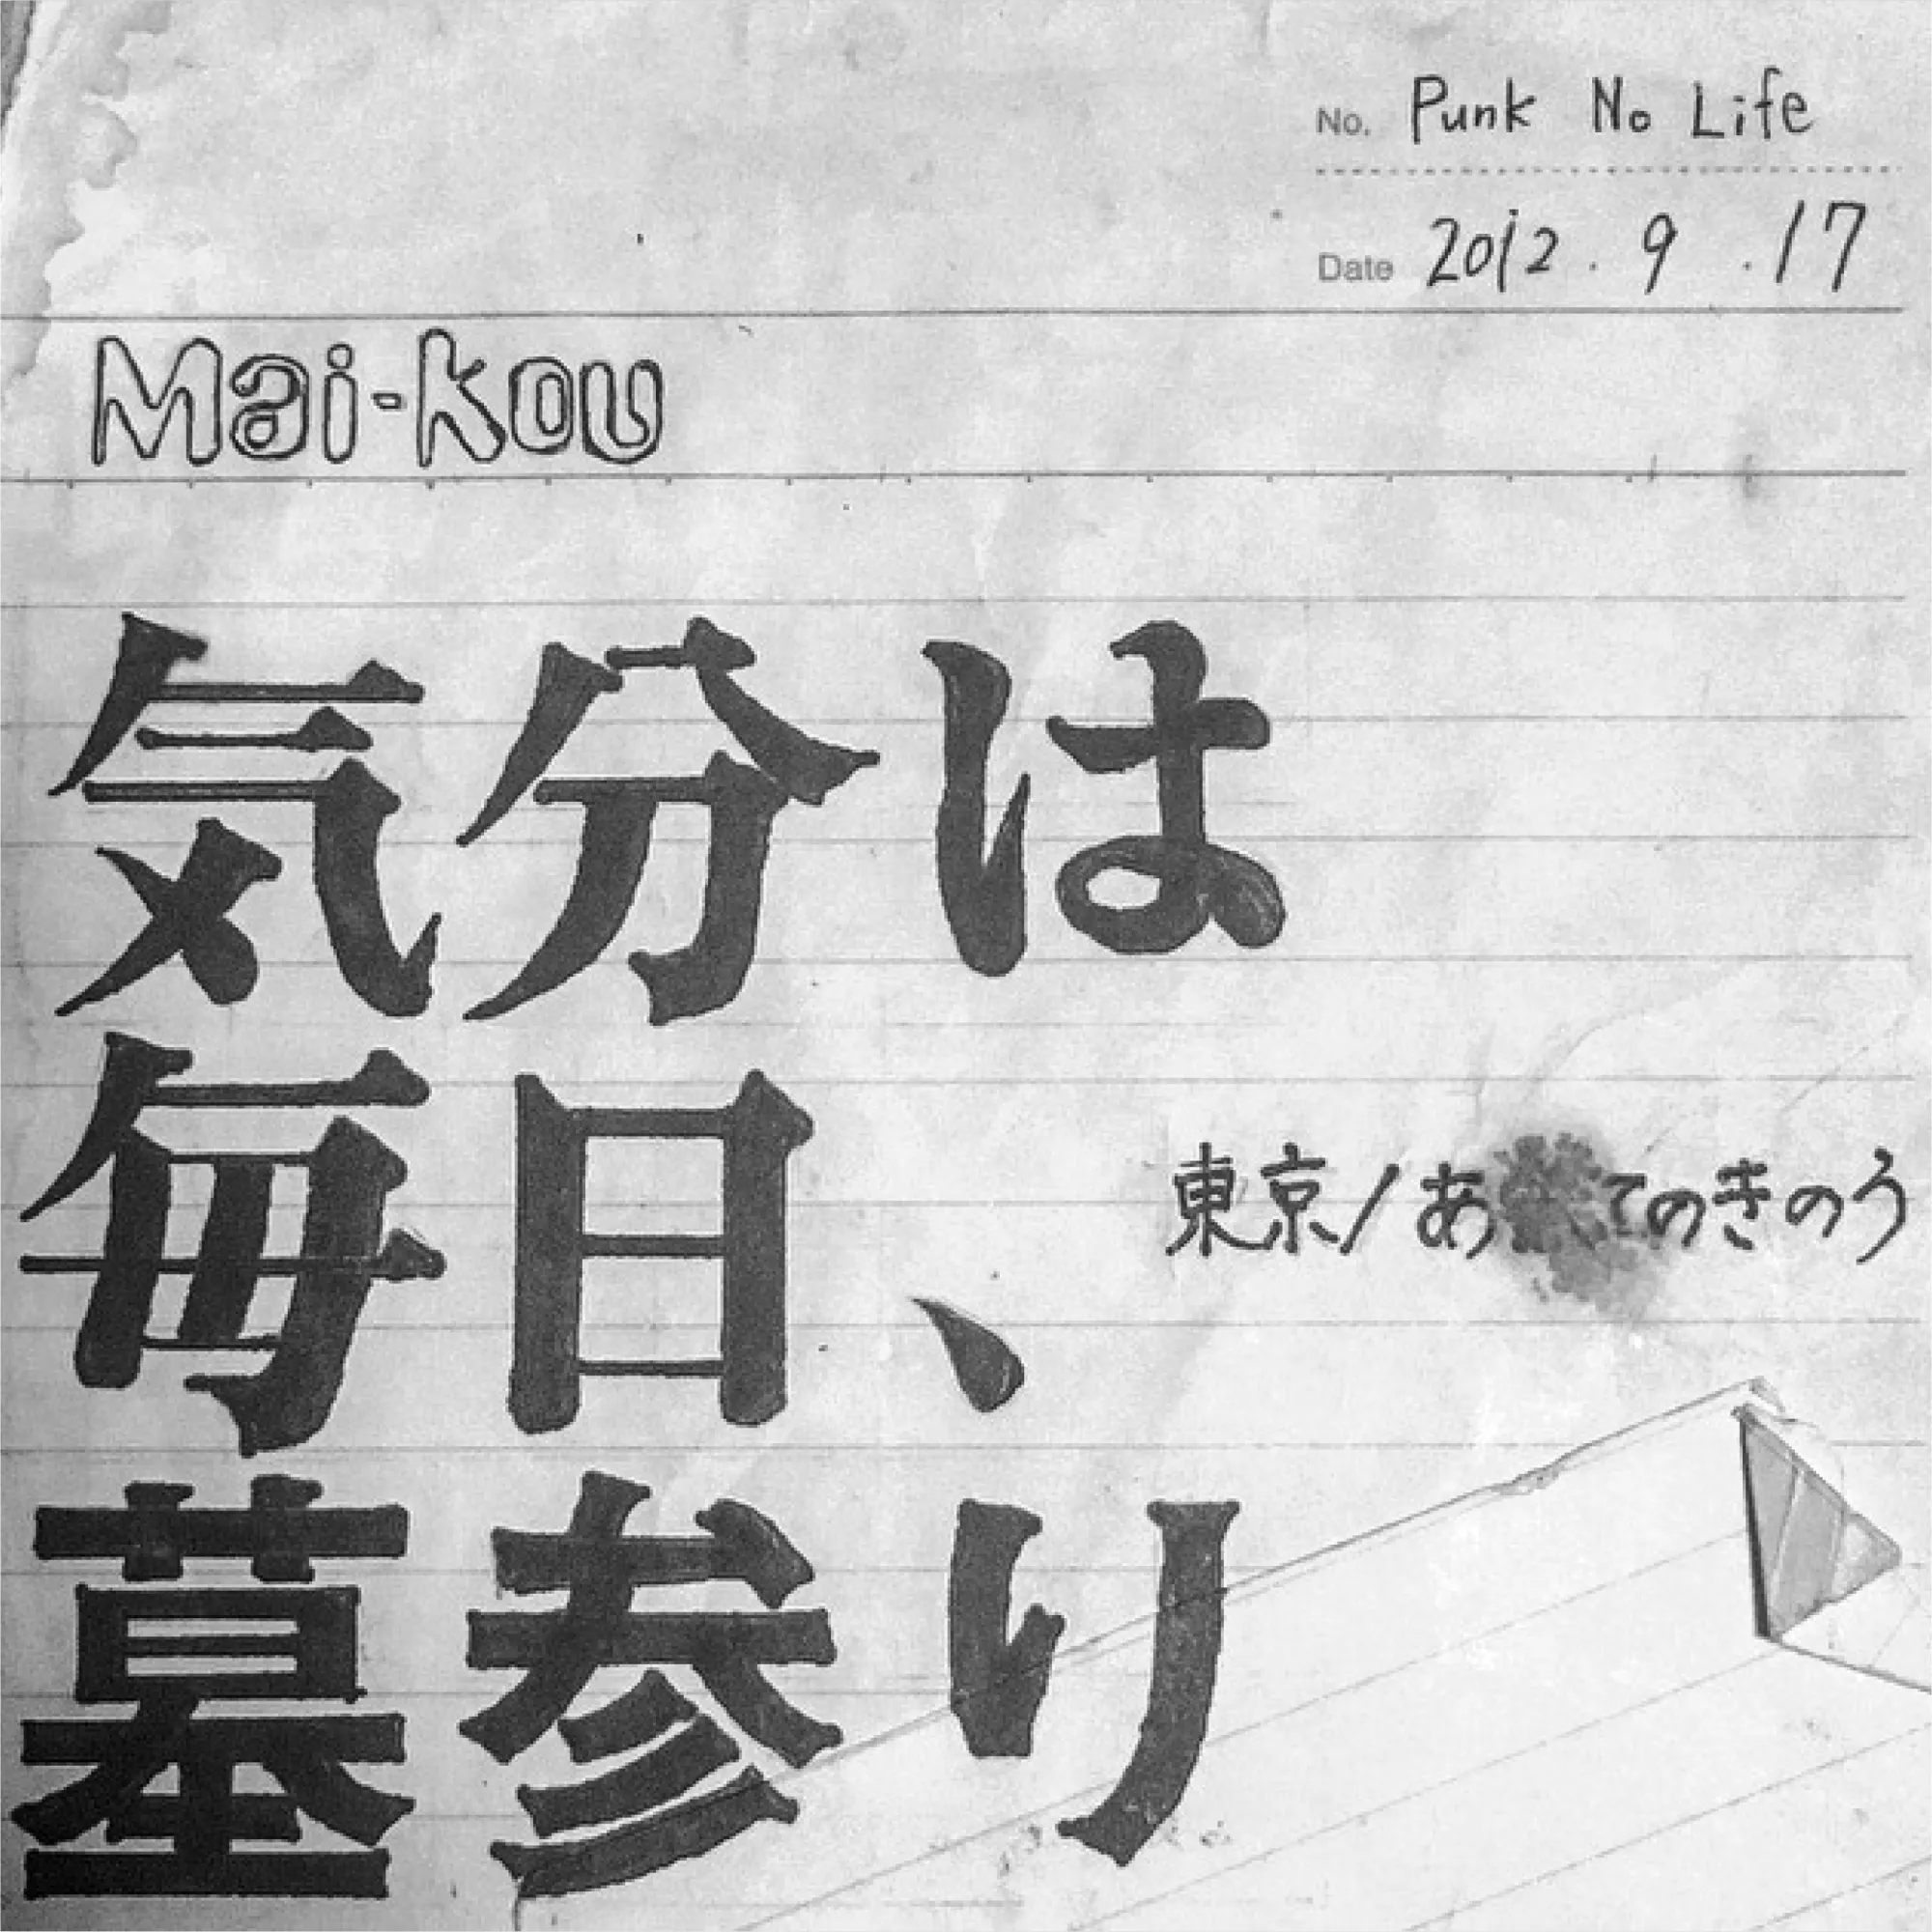 No. Punk No Life
Date 2012.9.17
Mai-kou
気分は
毎日、
東京/あ てのきのう
墓参り